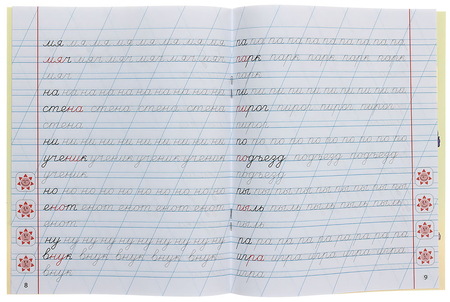 мя мя мя мя мя мя мя мя
мяч мяч мяч мяч мяч мяч
мяч
на на на на на на на на
стена стена стена стена
стена
ни ни ни ни ни ни ни ни
ученик ученик ученик ученик
ученик
но но но но но но но но
енот енот енот енот енот
енот
ну ну ну ну ну ну ну ну ну
внук внук внук внук внук
внук
8
па па па па па па па па па
парк парк парк парк парк
парк
пи пи пи пи пи пи пи пи
пирог пирог пирог пирог
пирог
по по по по по по по по
подъезд подъезд подъезд
подъезд
пы пы пы пы пы пы пы пы
пыль пыль пыль пыль пыль
пыль
ра ра ра ра ра ра ра ра ра
игра игра игра игра игра
игра
9